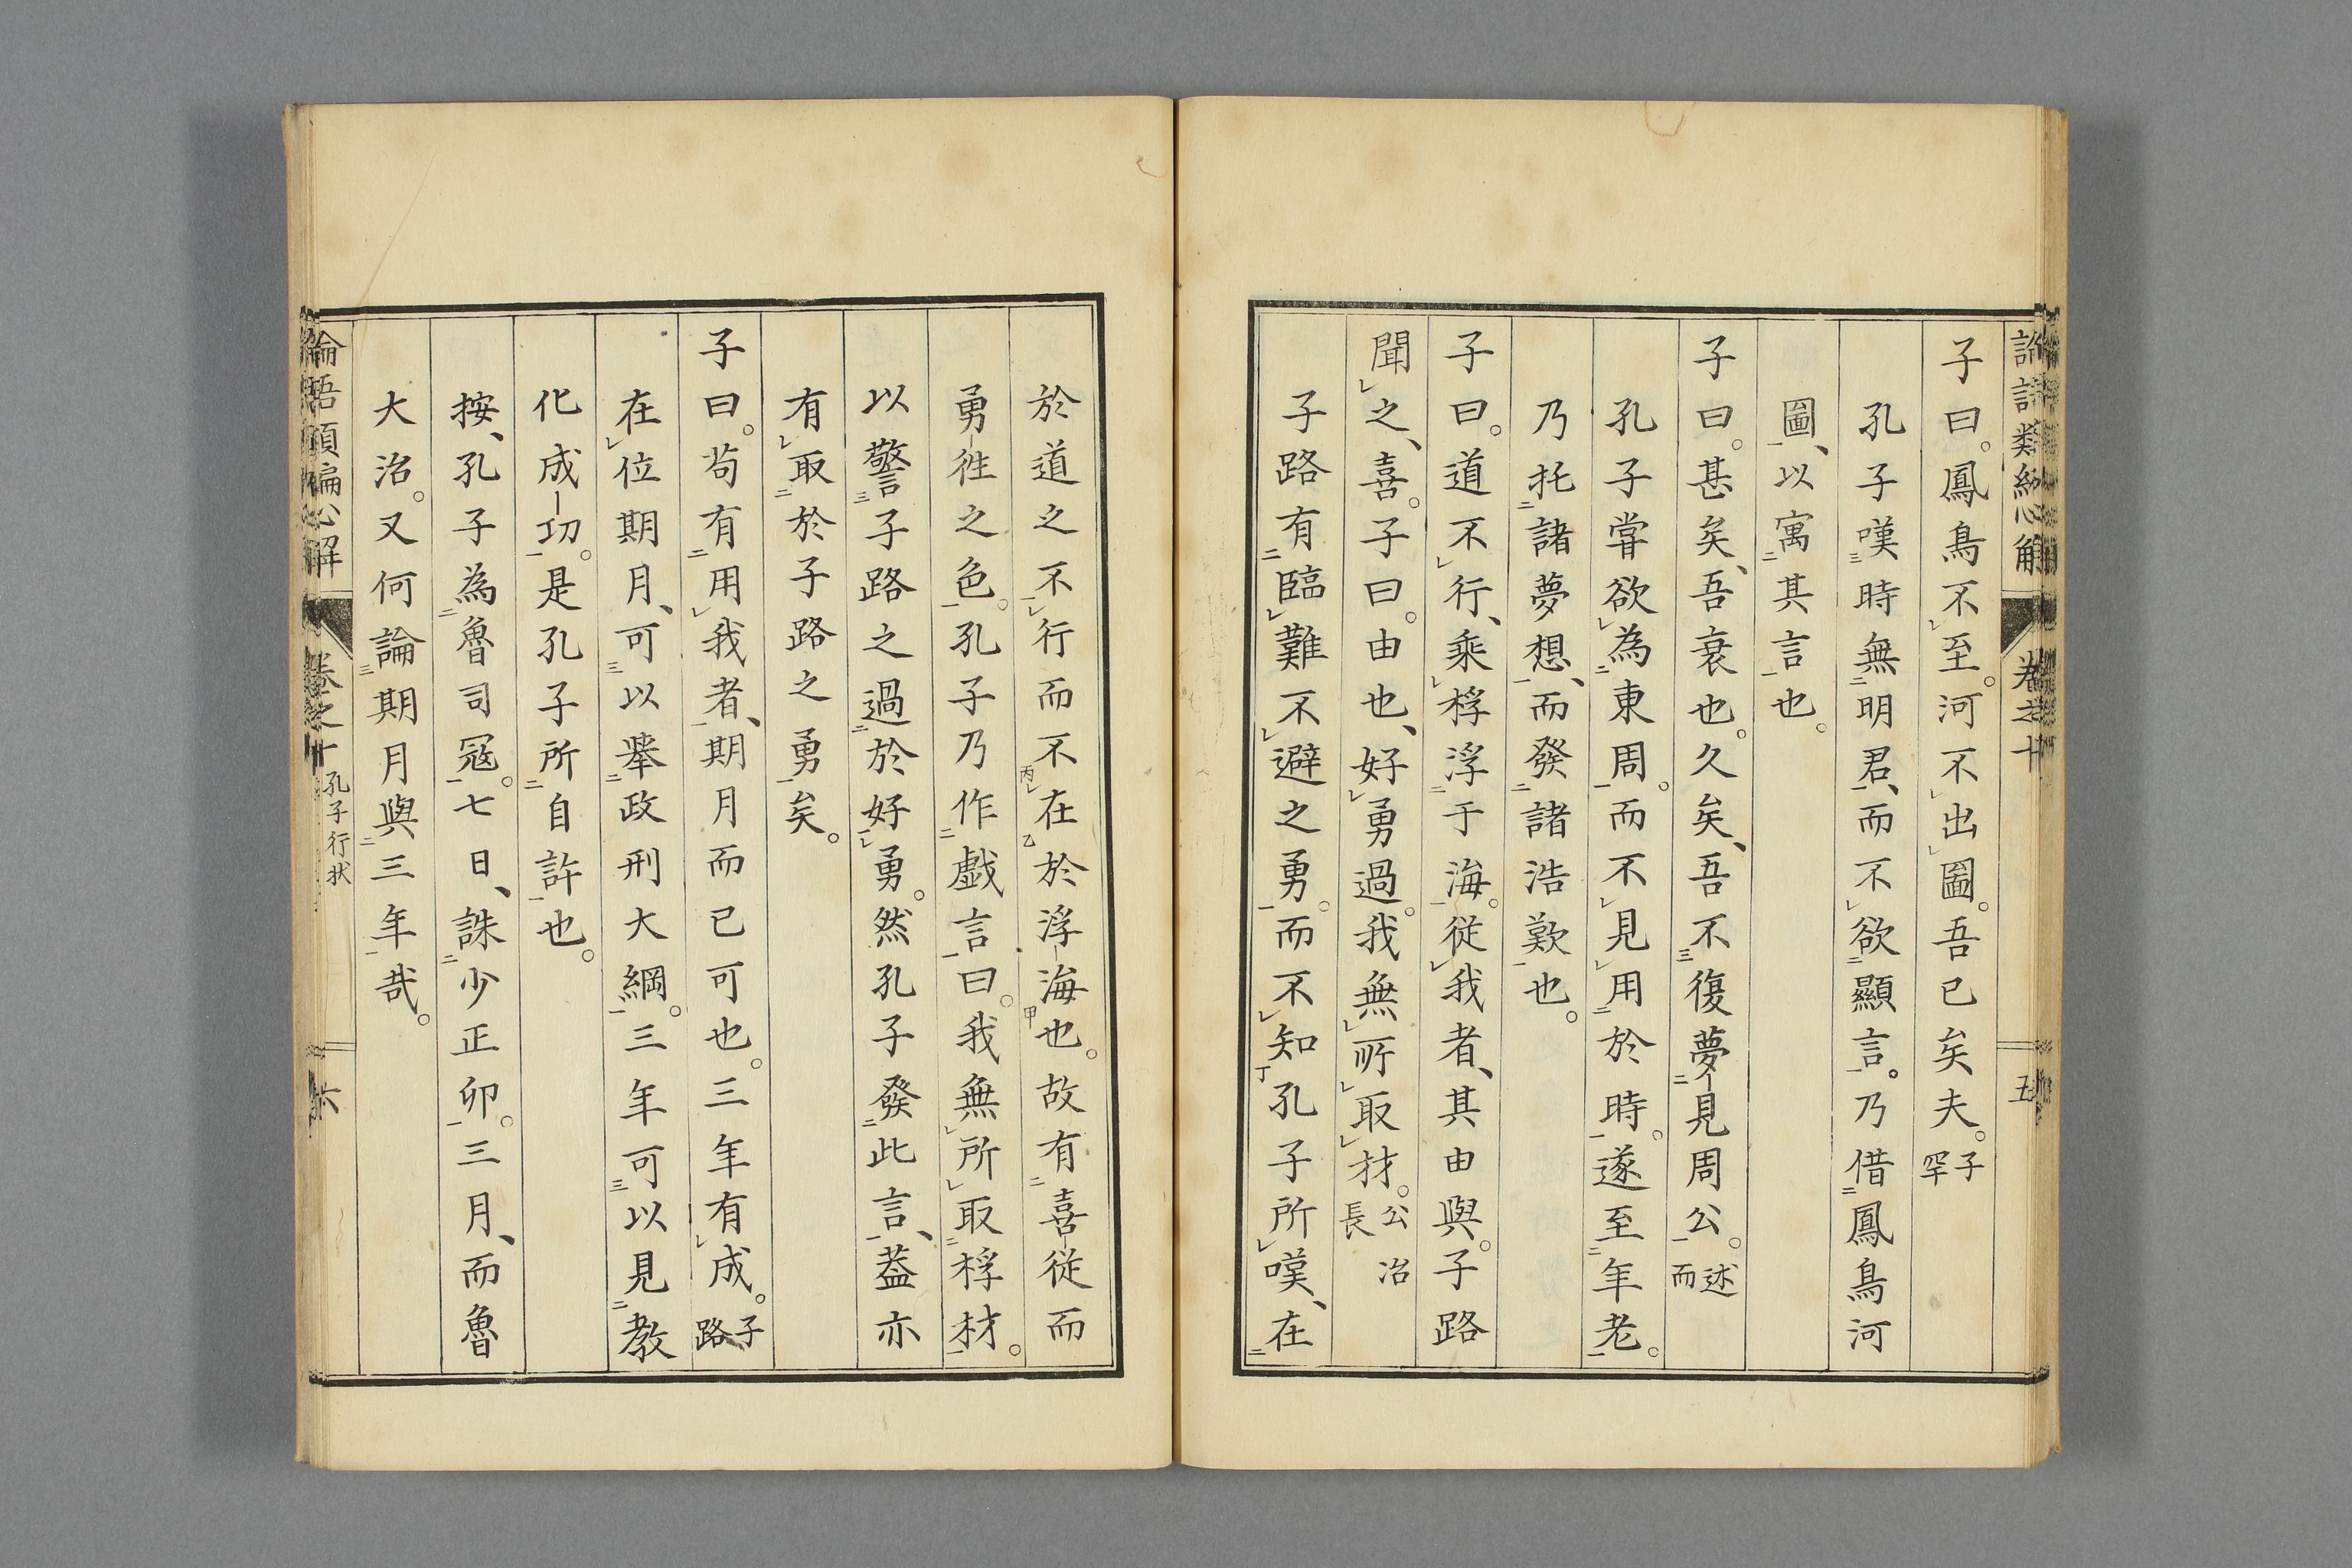 子曰。鳳鳥不至。河不出圖。吾已矣夫。子罕
孔子嘆時無明君、而不欲顯言。乃借鳳鳥河
圖、以寓其言也。
子曰。甚矣、吾衰也。久矣、吾不復夢見周公。述而
孔子嘗欲為東周。而不見用於時。遂至年老。
乃托諸夢想、而發諸浩歎也。
子曰。道不行、乘桴浮于海。從我者、其由與。子路
聞之、喜。子曰。由也、好勇過我。無所取材。公冶長
子路有臨難不避之勇。而不知孔子所嘆、在
於道之不行而不在於浮海也。故有喜從而
勇徃之色。孔子乃作戲言曰。我無所取桴材。
以警子路之過於好勇。然孔子發此言、蓋亦
有取於子路之勇矣。
子曰。苟有用我者、期月而已可也。三年有成。子路
在位期月、可以舉政刑大綱。三年可以見教
化成功。是孔子所自許也。
按、孔子為魯司寇。七日、誅少正卯。三月、而魯
大治。又何論期月與三年哉。
卷之十
五
卷之十
孔子行状
六